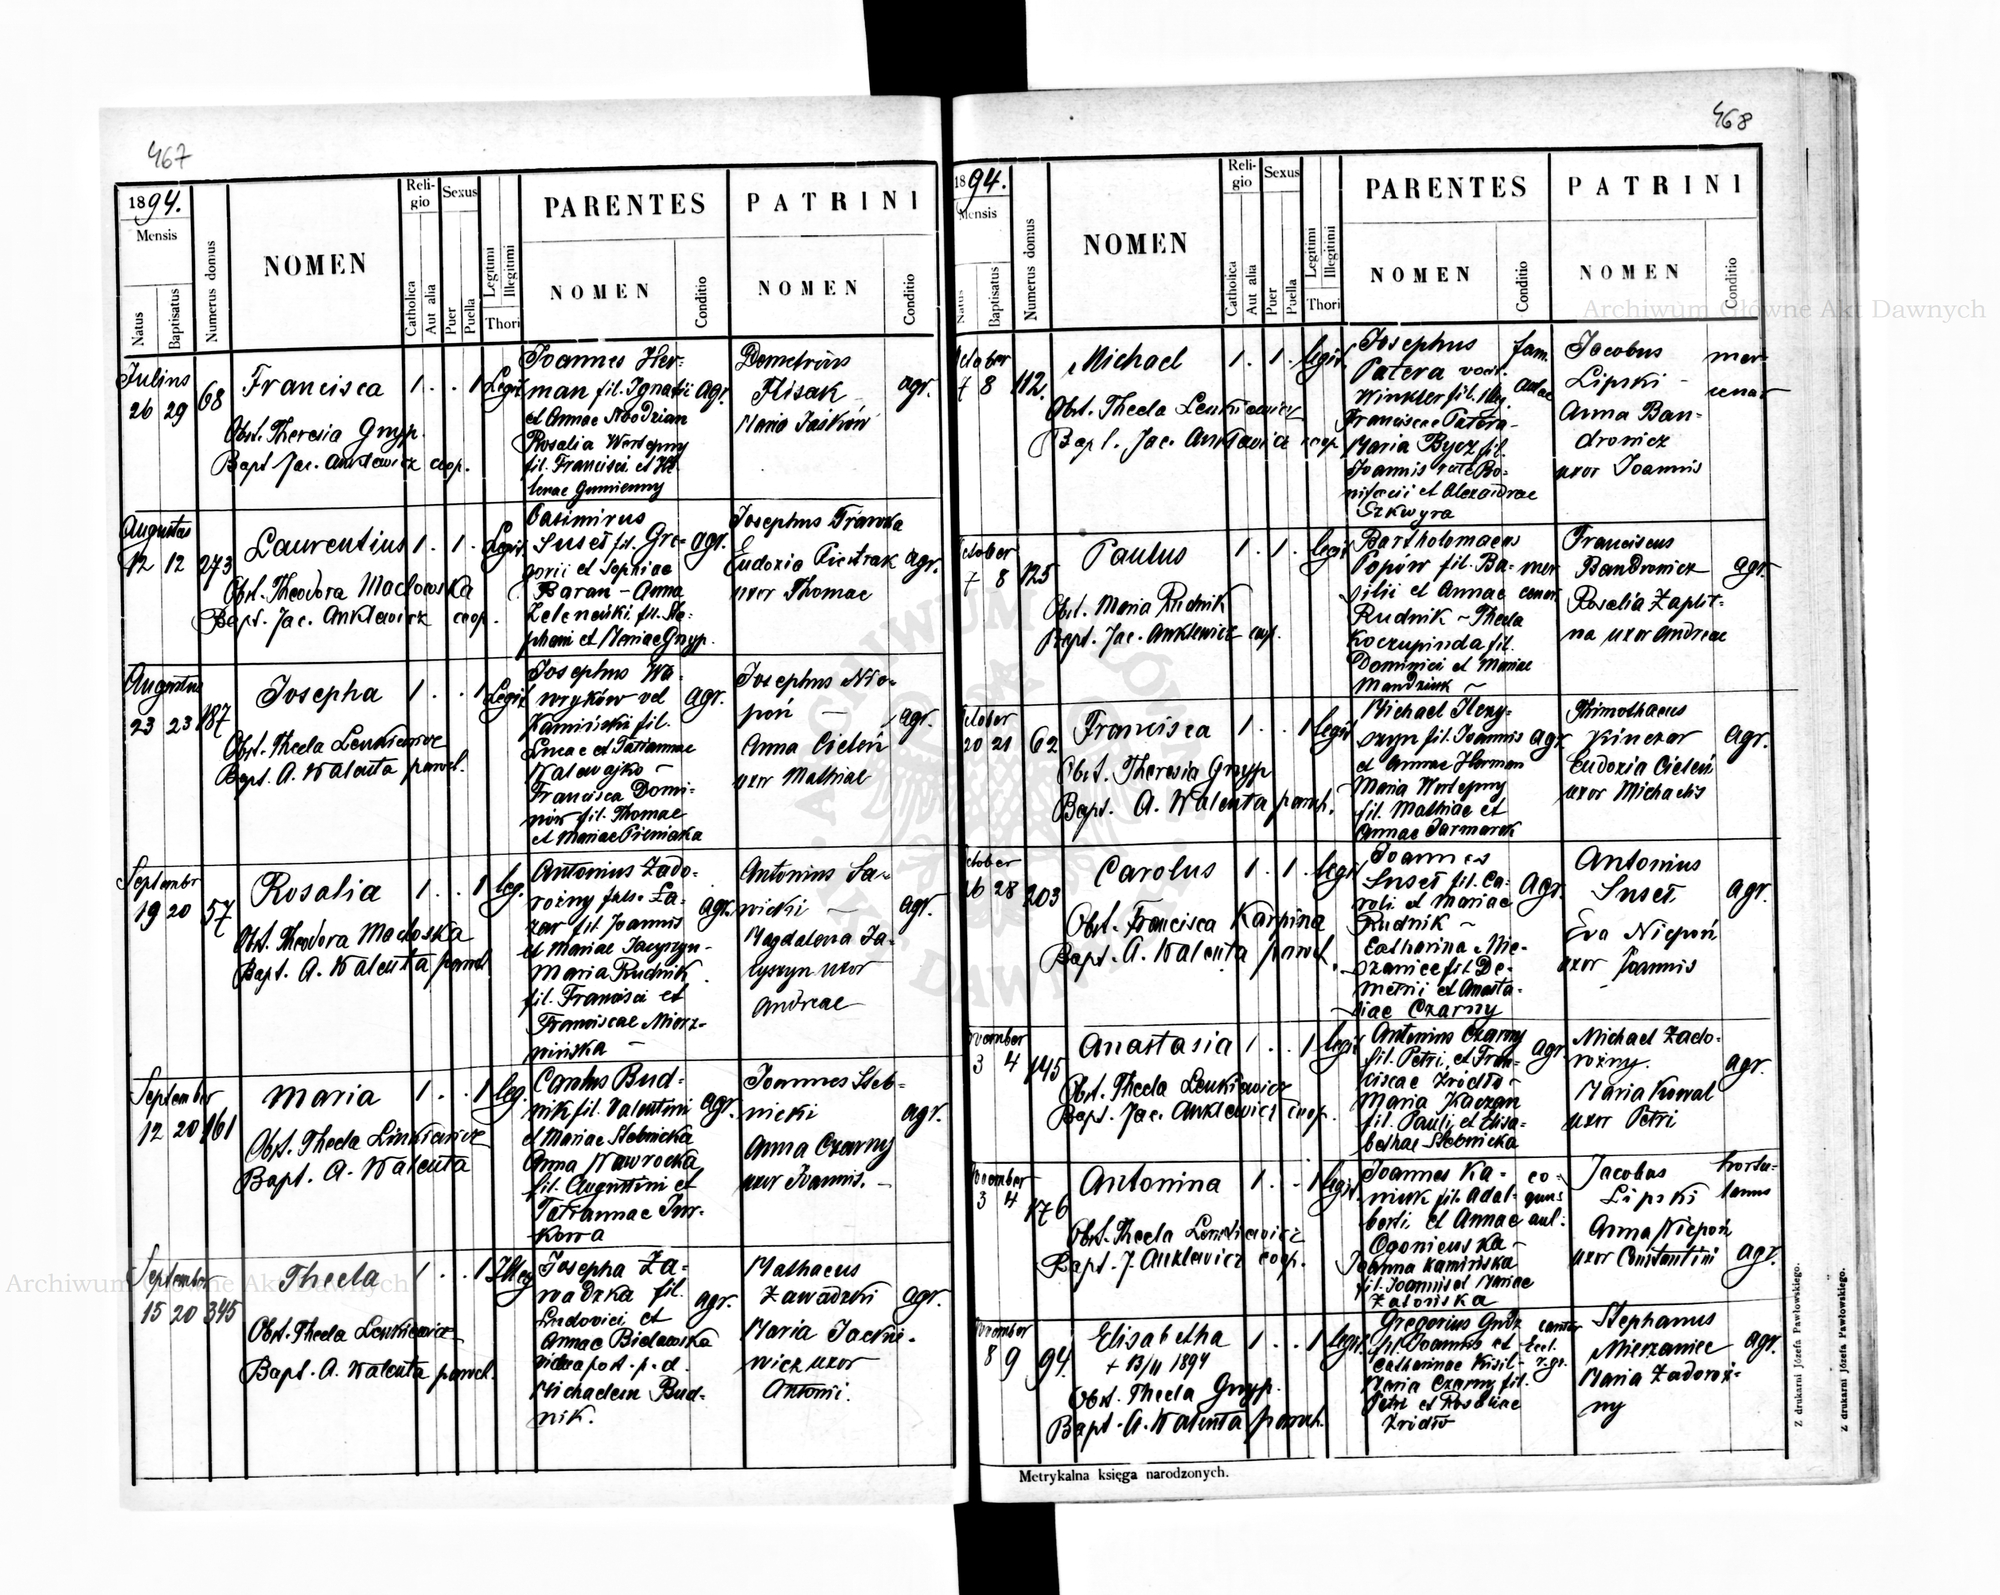 467
1894.
Mensis
Natus
Baptisatus
Numerus domus
NOMEN
Religio
Catholica
Aut alia
Sexus
Puer
Puella
Legitimi
Illegitimi
Thori
PARENTES
NOMEN
Conditio
PATRINI
NOMEN
Conditio
Julius
26 29 68
Francisca 1 . . 1 Legit.
Obst. Theresia Gnyp.
Bapt. Jac. Anklewicz coop.
Joannes Her-
man fil. Ignatii agr.
et Annae
Rosalia
fil. Francisci et He-
lenae Gumienny
Demetrius
Flisak agr.
Maria
Augustus
12 12 273
Laurentius 1 . 1 . Legit.
Obst. Theodora
Bapt. Jac. Anklewicz coop.
Casimirus
Suseł fil. Gre- agr.
gorii et Sophiae
Baran - Anna
fil. Ste-
phani et Mariae Gnyp.
Josephus
Eudoxia Pietrak agr.
uxor Thomae
Augustus
23 23 187
Josepha 1 . . 1 Legit.
Obst. Thecla Lenkiewicz
Bapt. A. Walenta paroch.
Josephus Wa-
wryków vel agr.
Kamiński fil.
Lucae et Tatiannae
Walawajko -
Francisca Domi-
nów fil. Thomae
et Mariae Pieniaka
Josephus Nie-
poń agr.
Anna Cieleń
uxor Mathiae
September
19 20 57
Rosalia 1 . . 1 leg.
Obst. Theodora
Bapt. A. Walenta paroch.
Antonius Zado-
rożny
fil. Joannis agr.
et Mariae
Maria Rudnik
fil. Francisci et
Franciscae Mierz-
wińska -
Antonius Sa-
wicki - agr.
Magdalena Ja-
cyszyn uxor
Andreae
September
12 20 161
Maria 1 . . 1 leg.
Obst. Thecla Linkiewicz
Bapt. A. Walenta
Carolus Bud-
nik fil. Valentini agr.
et Mariae Slebnicka
Anna Nawrocka
fil. Augustini et
Tatiannae Jur-
kowa
Joannes Sleb-
nicki agr.
Anna Czarny
uxor Joannis. -
September
15 20 345
Thecla 1 . . 1 Illeg.
Obst. Thecla Lenkiewicz
Bapt. A. Walenta paroch.
Josepha Za-
wadzka fil. agr.
Ludovici et
Annae Bielawska
vidua post. p. d.
Michaelem Bud-
nik.
Mathaeus
Zawadzki agr.
Maria Jacki-
wicz uxor
Antonii.
468
1894.
Mensis
Natus
Baptisatus
Numerus domus
NOMEN
Religio
Catholica
Aut alia
Sexus
Puer
Puella
Legitimi
Illegitimi
Thori
PARENTES
NOMEN
Conditio
PATRINI
NOMEN
Conditio
October
7 8 112.
Michael 1 . 1 . legit.
Obst. Thecla Lenkiewicz
Bapt. Jac. Anklewicz coop.
Josephus fam.
Patera
Winkler fil. illeg. aulae
Franciscae Patera -
Maria Bycz fil.
Joannis
et Alexandrae
Szkwyra
Jacobus mer-
Lipski - cenar
Anna Ban-
drowicz
uxor Joannis
October
7 8 125
Paulus 1 . 1 . legit.
Obst. Maria Rudnik
Bapt. Jac. Anklewicz coop.
Bartholomaeus
Popów fil. Ba- mer
silii et Annae cenar.
Rudnik - Thecla
Koczupinda fil.
Dominici et Mariae
Mandziuk -
Franciscus
Bandrowicz agr.
Rosalia Zaplit-
na uxor Andreae
October
20 21 62
Francisca 1 . . 1 legit.
Obst. Theresia Gnyp
Bapt. A. Walenta paroch.
Michael
fil. Joannis agr.
et Annae Herman
Maria
fil. Mathiae et
Annae Jarmarek
Thimothaeus
Kinczar agr.
Eudoxia Cieleń
uxor Michaelis
October
26 28 203
Carolus 1 . 1 . legit.
Obst. Francisca Karpina
Bapt. A. Walenta paroch.
Joannes
Suseł fil. Ca- agr.
roli et Mariae
Rudnik -
Catharina Mie-
rzaniec fil. De-
metrii et Anasta-
siae Czarny
Antonius
Suseł agr.
Eva Niepoń
uxor Joannis
November
3 4 145
Anastasia 1 . . 1 legit.
Obst. Thecla Lenkiewicz
Bapt. Jac. Anklewicz coop.
Antonius Czarny
fil. Petri, et Fran- agr.
ciscae Źródło -
Maria Kaczan
fil. Pauli et Elisa-
bethae Slebnicka
Michael Zado-
rożny. agr.
Maria Kowal
uxor Petri
November
3 4 176
Antonina 1 . . 1 legit.
Obst. Thecla Lenkiewicz
Bapt. J. Anklewicz coop.
Joannes Ka- co-
niuk fil. Adal- quus
berti et Annae aul.
Ogonicuska -
Joanna Kamińska
fil. Joannis et Mariae
Załońska
Jacobus hortu-
Lipski lanus
Anna Niepoń
uxor Constantini agr.
November
8 9 94.
Elisabetha 1 . . 1 legit.
+ 13/11 1894
Obst. Thecla Gnyp.
Bapt. A. Walenta paroch.
Gregorius cantor
fil. Joannis et Eccl.
Catharinae Kisil - r. gr.
Maria Czarny fil.
Petri et Rosaliae
Źródło
Stephanus
Mierzaniec agr.
Maria Zadoroż-
ny
Metrykalna księga narodzonych.
Z drukarni Józefa Pawłowskiego.
Z drukarni Józefa Pawłowskiego.
Archiwum Główne Akt Dawnych
Archiwum Główne Akt Dawnych
ARCHIWUM GŁÓWNE AKT DAWNYCH